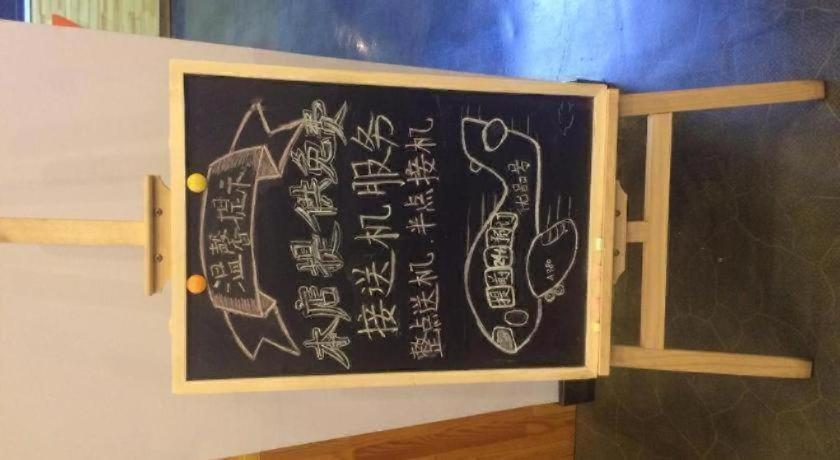 温馨提示
本店提供免费
接送机服务
整点送机.半点接机
A380